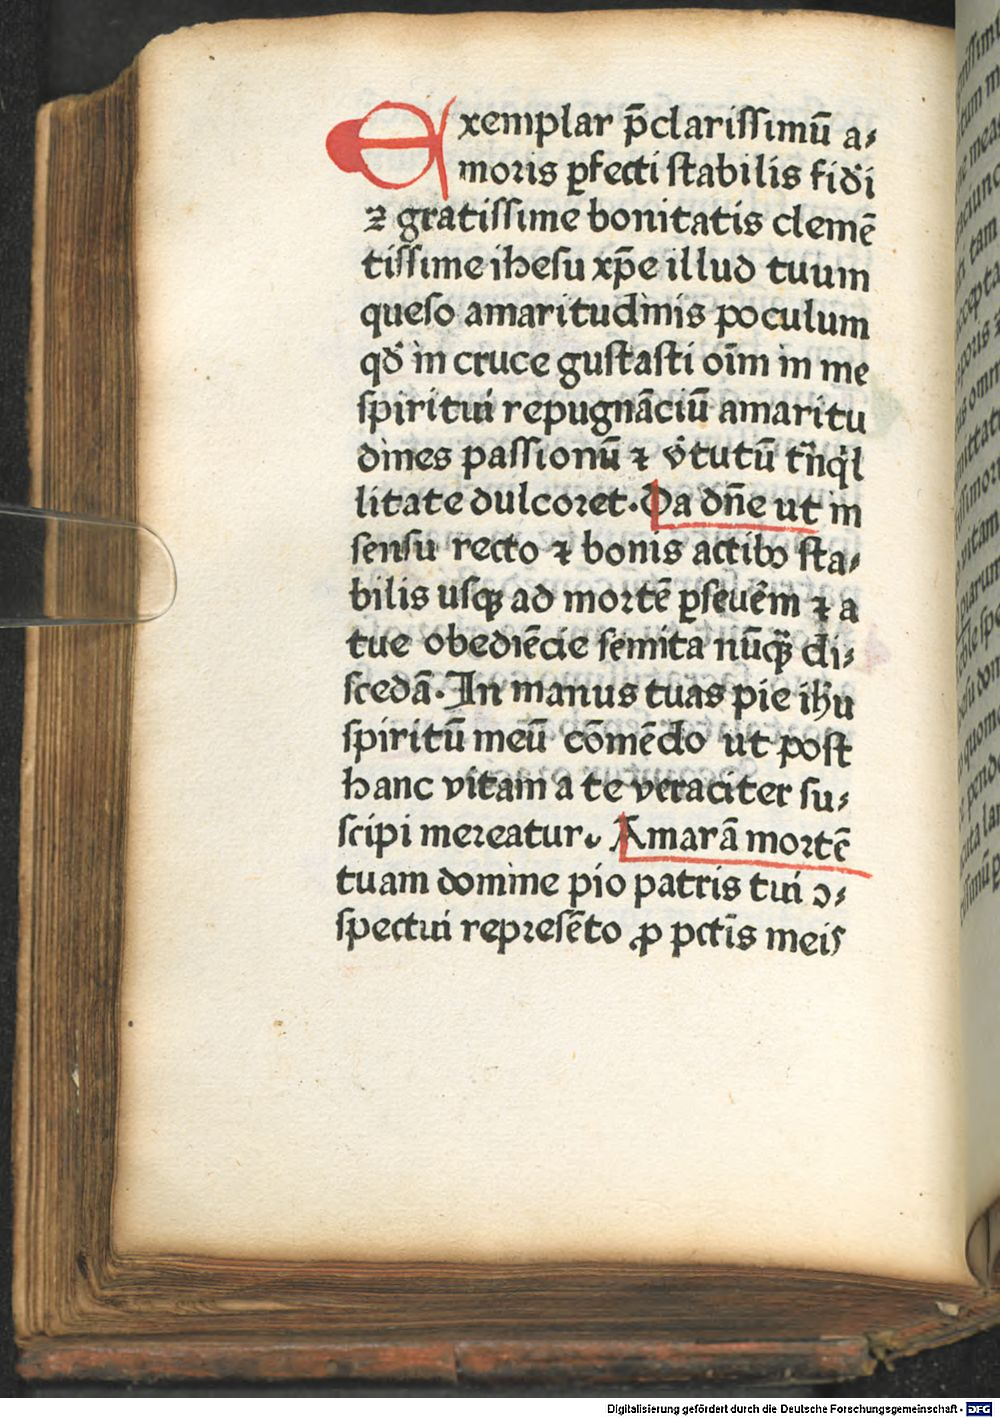 Exemplar p̄clarissimū a⸗
moris ꝑfecti stabilis fidei
⁊ gratissime bonitatis clemē
tissime ihesu xp̄e illud tuum
queso amaritudinis poculum
qđ in cruce gustasti oīm in me
spiritui repugnāciū amaritu
dines passionū ⁊ v̓tutū tñqͥl
litate dulcoret. Da dn̄e ut in
sensu recto ⁊ bonis actibꝫ sta⸗
bilis usqꝫ ad mortē ꝑseuēm ⁊ a
tue obediēcie semita nūqᷓꝫ di⸗
scedā. In manus tuas pie ihū
spiritū meū cōmēdo ut post
hanc vitam a te veraciter su⸗
scipi merear tur. Amarā mortē
tuam domine pio patris tui ↄ⸗
spectui represēto ꝓ pctīs meis
Digitalisierung gefördert durch die Deutsche Forschungsgemeinschaft - DFG